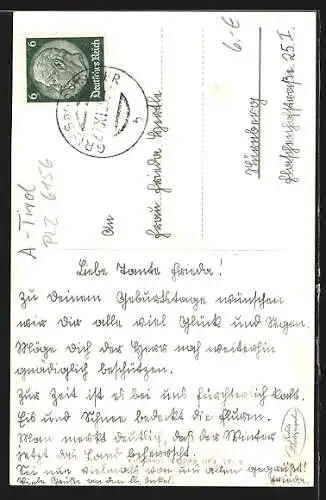 6
6
Deutsches Reich
6.-€
A-Tirol
PLZ 6156
An
Frau Frieda
Nürnberg
25 I.
Liebe Tante Frieda!
Zu Deinem Geburtstage wünschen
wir Dir alle viel Glück und Segen.
Möge Dich der Herr noch weiterhin
gnädiglich beschützen.
Zur Zeit ist es bei uns fürchterlich kalt.
Eis und Schnee bedeckt die Fluren.
Man merkt deutlich, daß der Winter
jetzt das Land beherrscht.
Sei nun vielmals von uns allen gegrüßt!
Viele Grüße an den lb. Onkel.